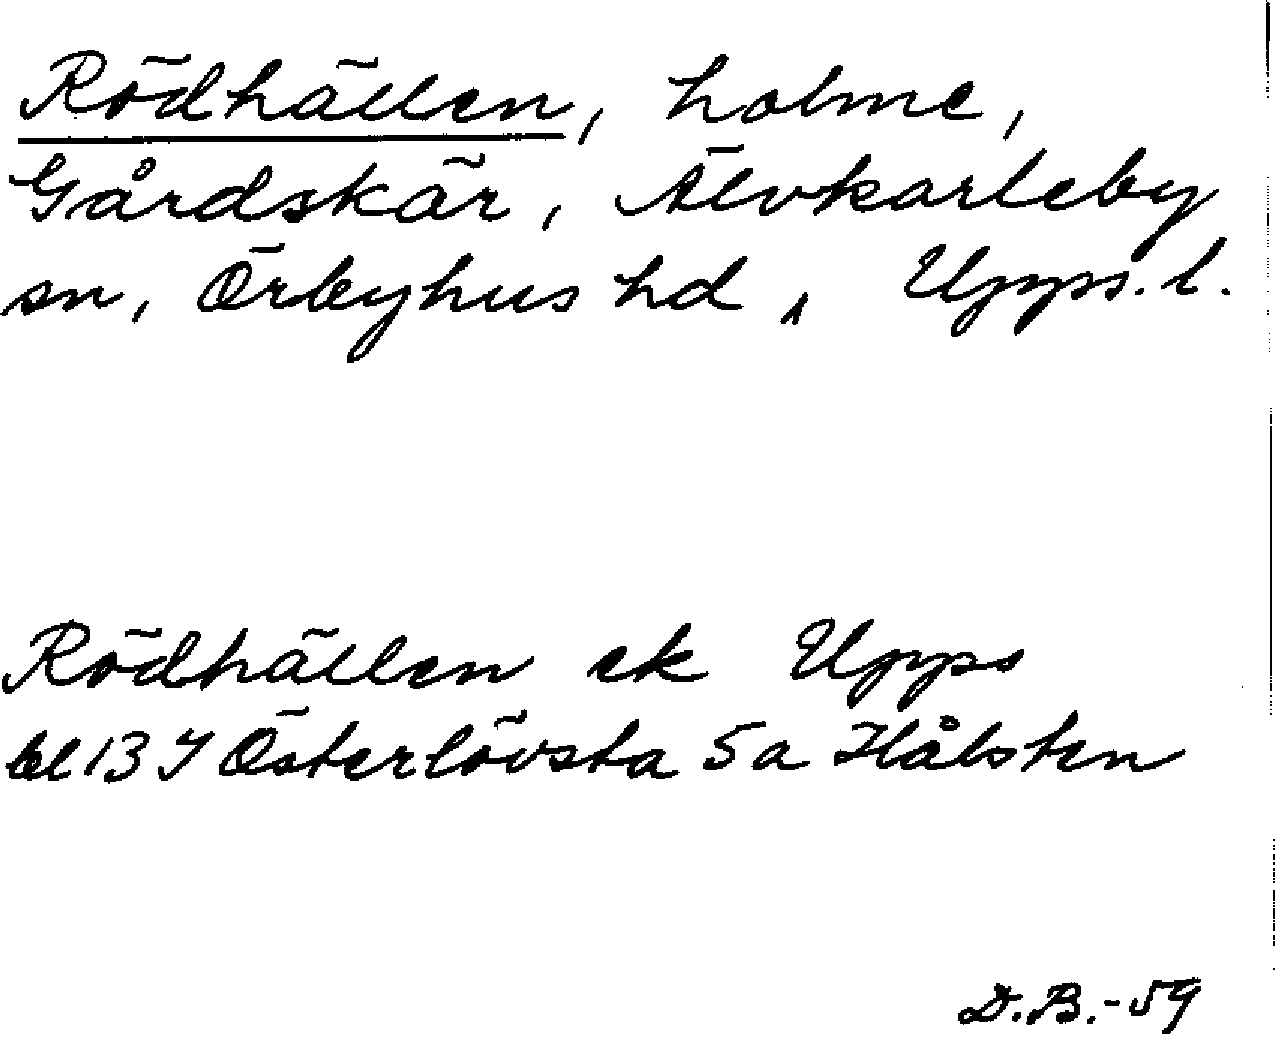 Rödhällen, holme,
Gårdskär, Älvkarleby
sn, Örbyhus hd, Upps. l.
Rödhällen ek Upps
bl 13 Y Österlövsta 5a Hålsten
D.B.-59